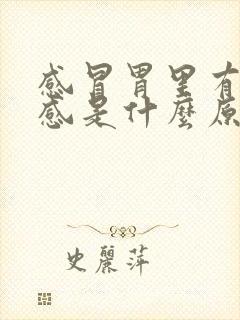 感冒胃里有
感是什麼原
史麗萍